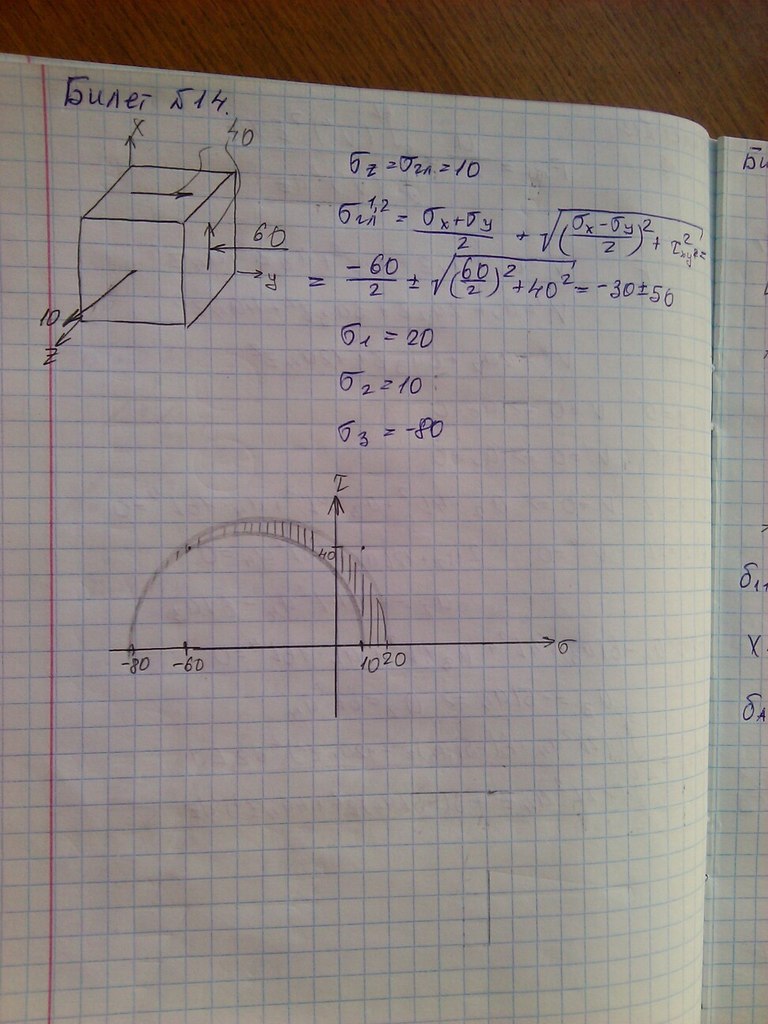 Билет Б14.
X
40
60
y
10
Z
σz = σгл. = 10
σгл^1,2 = (σx+σy)/2 + √((σx−σy)/2)² + τ²xy =
= −60/2 ± √(60/2)² + 40² = −30±50
σ1 = 20
σ2 = 10
σ3 = −80
τ
40
−80 −60 10 20 σ
Би
σ1
X